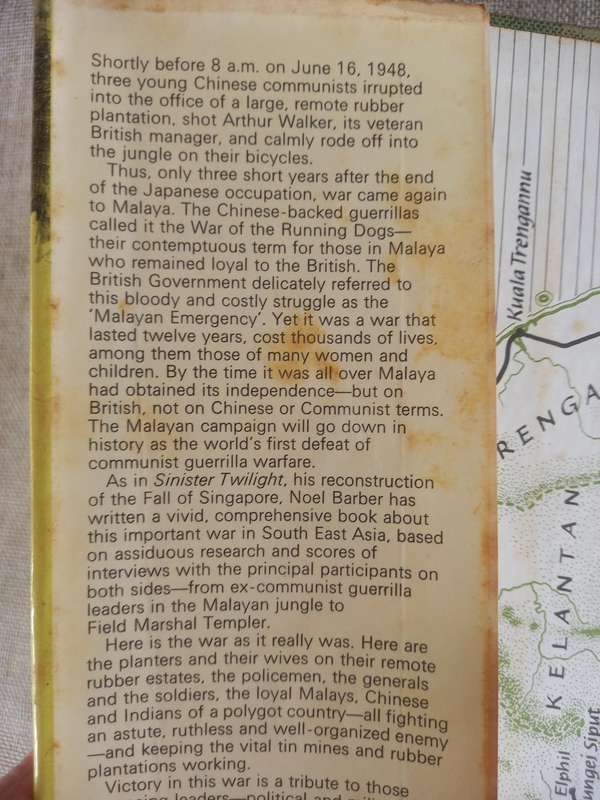 Shortly before 8 a.m. on June 16, 1948,
three young Chinese communists irrupted
into the office of a large, remote rubber
plantation, shot Arthur Walker, its veteran
British manager, and calmly rode off into
the jungle on their bicycles.
Thus, only three short years after the end
of the Japanese occupation, war came again
to Malaya. The Chinese-backed guerrillas
called it the War of the Running Dogs—
their contemptuous term for those in Malaya
who remained loyal to the British. The
British Government delicately referred to
this bloody and costly struggle as the
'Malayan Emergency'. Yet it was a war that
lasted twelve years, cost thousands of lives,
among them those of many women and
children. By the time it was all over Malaya
had obtained its independence—but on
British, not on Chinese or Communist terms.
The Malayan campaign will go down in
history as the world's first defeat of
communist guerrilla warfare.
As in Sinister Twilight, his reconstruction
of the Fall of Singapore, Noel Barber has
written a vivid, comprehensive book about
this important war in South East Asia, based
on assiduous research and scores of
interviews with the principal participants on
both sides—from ex-communist guerrilla
leaders in the Malayan jungle to
Field Marshal Templer.
Here is the war as it really was. Here are
the planters and their wives on their remote
rubber estates, the policemen, the generals
and the soldiers, the loyal Malays, Chinese
and Indians of a polygot country—all fighting
an astute, ruthless and well-organized enemy
—and keeping the vital tin mines and rubber
plantations working.
Victory in this war is a tribute to those
leaders—political and
Kuala Trengannu
RENGA
KELANTAN
Elphil
ungei Siput